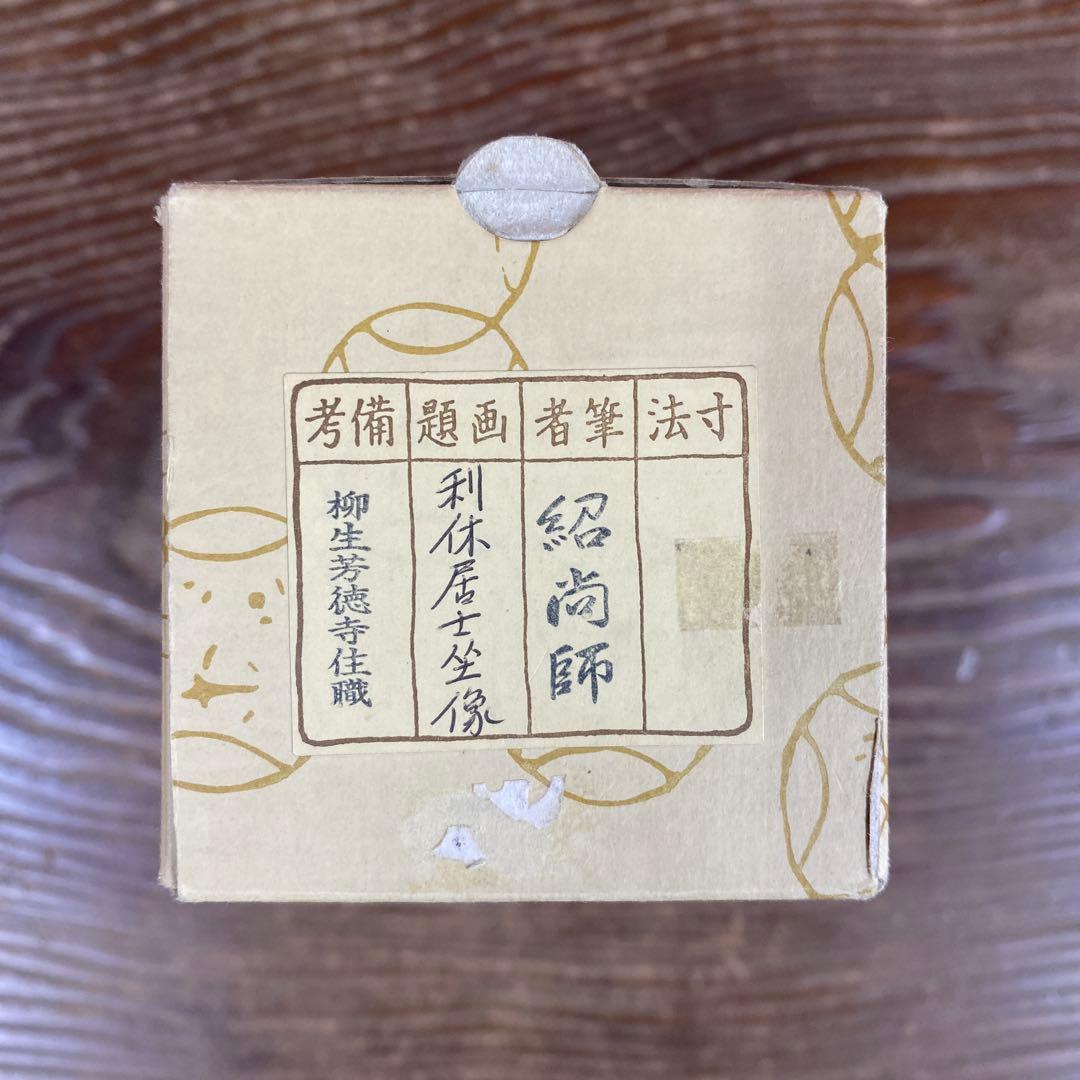 寸法
筆者
紹尚師
画題
利休居士坐像
備考
柳生芳徳寺住職